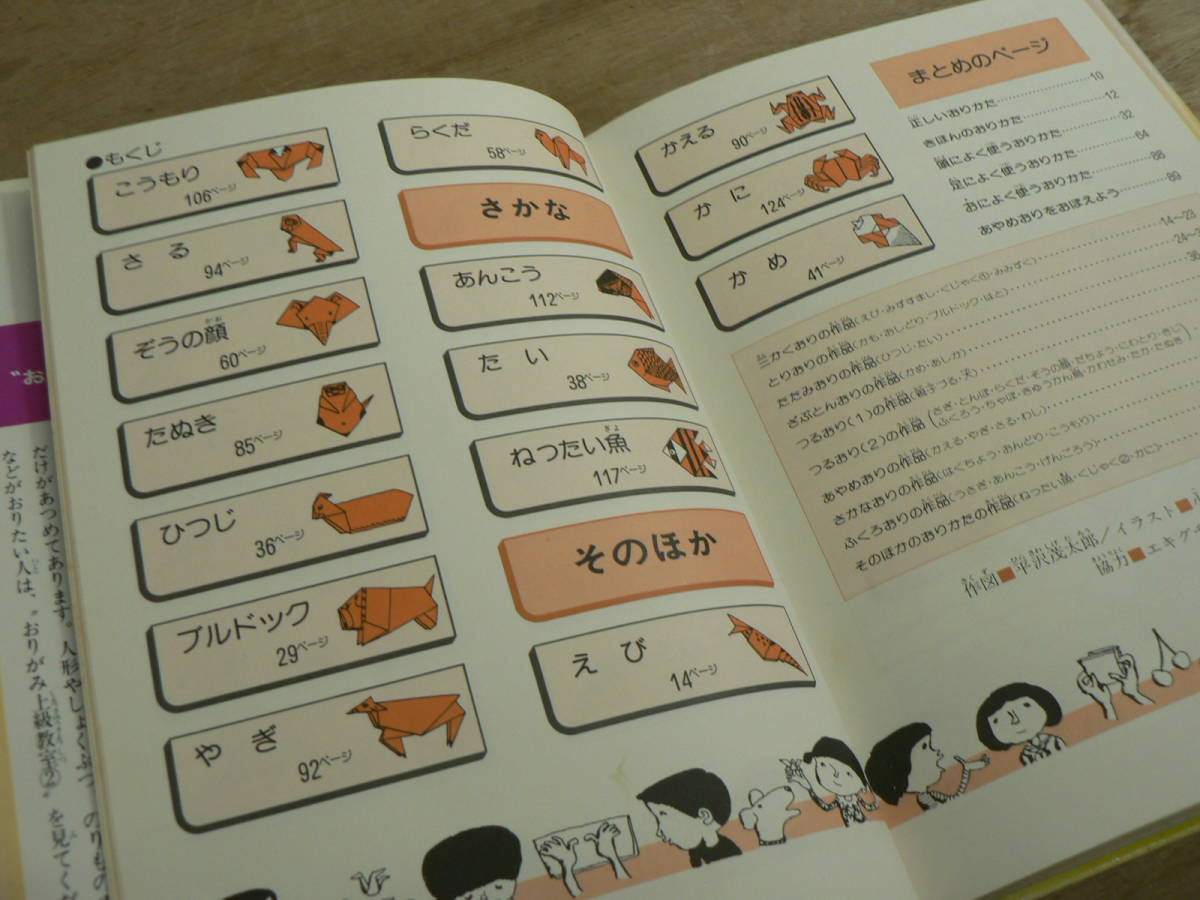 ●もくじ
こうもり
106ページ
さる
94ページ
ぞうの顔
60ページ
たぬき
85ページ
ひつじ
36ページ
ブルドック
29ページ
やぎ
92ページ
らくだ
58ページ
さかな
あんこう
112ページ
たい
38ページ
ねったい魚
117ページ
そのほか
えび
14ページ
かえる
90ページ
かに
124ページ
かめ
41ページ
まとめのページ
正しいおりかた 10
きほんのおりかた 12
頭によく使うおりかた 32
足によく使うおりかた 64
おによく使うおりかた 88
あやめおりをおぼえよう 89
三かくおりの作品(えび・みずすまし・くじゃく①・みみずく) 14〜23
とりおりの作品(かも・おしどり・ブルドック・はと) 24〜
たたみおりの作品(ひつじ・たい) 36
ざぶとんおりの作品(かめ・あしか)
つるおり(1)の作品
つるおり(2)の作品(さぎ・とんぼ・らくだ・ぞうの顔・だちょう・にわとり・
ふくろう・ちゃぼ・きゅうかん鳥・かわせみ・たか・たぬき)
あやめおりの作品(かえる・やぎ・さる・わし)
さかなおりの作品(はくちょう・あんどり・こうもり)
ふくろおりの作品(うさぎ・あんこう・げんごろう)
そのほかのおりかたの作品(ねったい魚・くじゃく②・かに)
作図■平沢茂太郎/イラスト■
協力■エキグ
"お
だけがあつめてあります。人形やしょくぶつ、のりもの
などがおりたい人は、"おりがみ上級教室②"を見てくだ